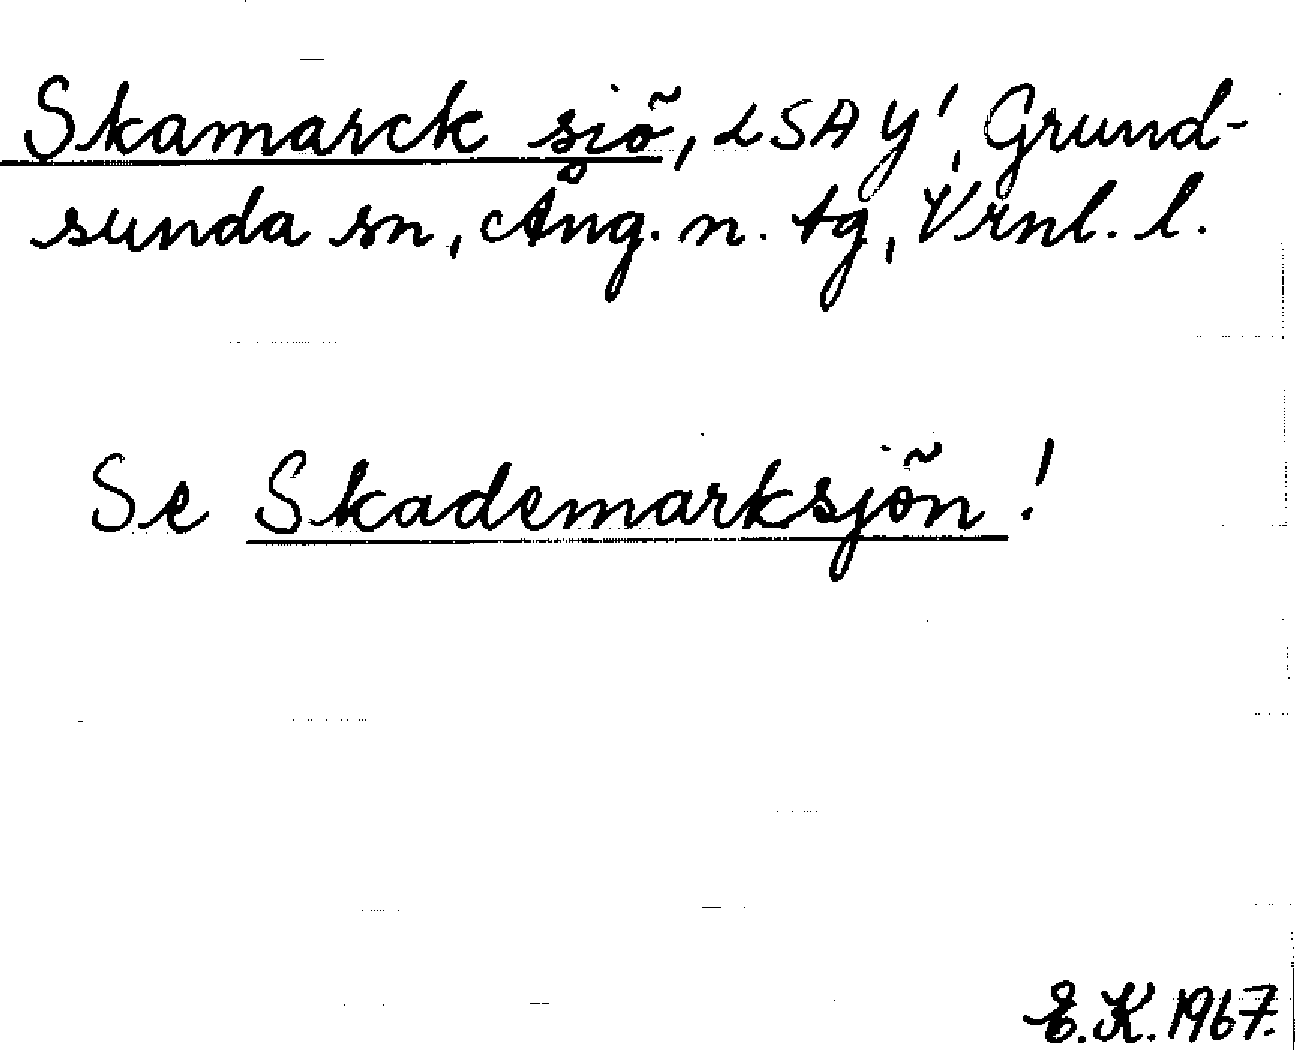 Skamarck siö, LSA Y', Grund-
sunda sn, Ång. n. tg, Vrnl. l.
Se Skademarksjön!
E.K. 1967.